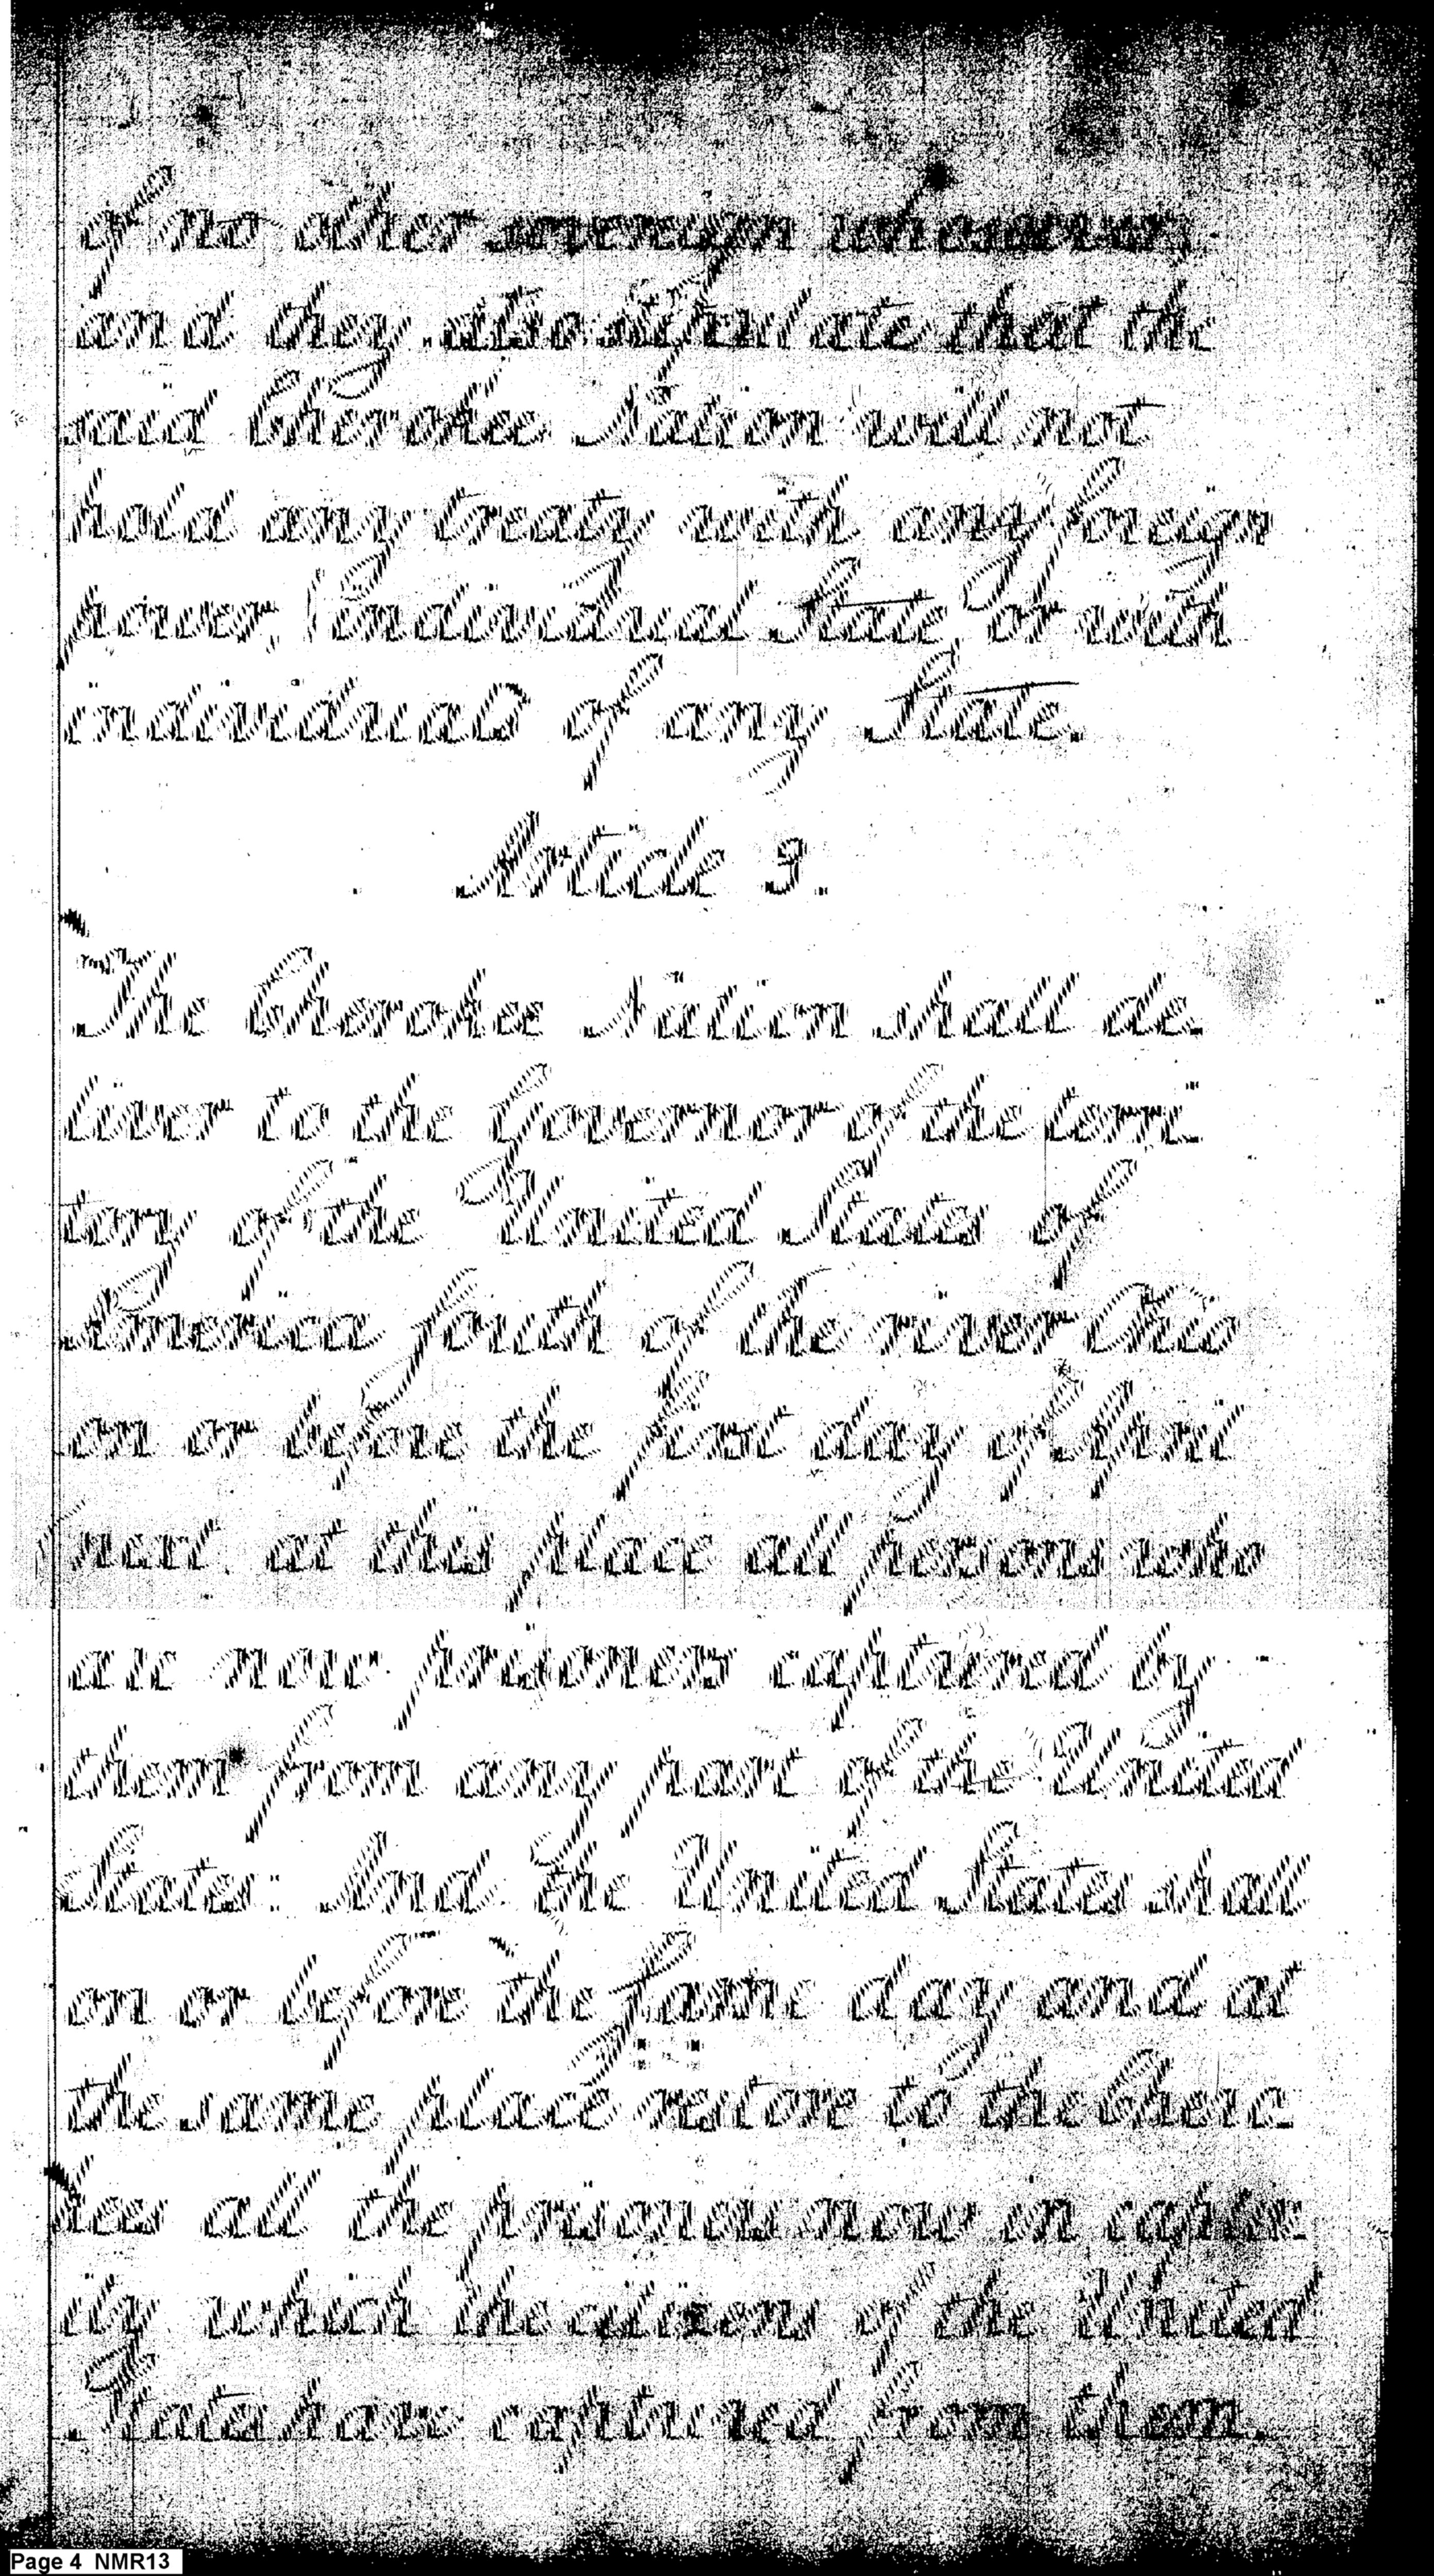 of no other sovereign whosoever;
and they also stipulate that the
said Cherokee Nation will not
hold any treaty with any foreign
power, individual State, or with
individuals of any State.
Article 3.
The Cherokee Nation shall de
liver to the Governor of the terri
tory of the United States of
America South of the river Ohio
on or before the first day of April
next at this place all persons who
are now prisoners captured by
them from any part of the United
States: And the United States shall
on or before the same day and at
the same place restore to the Chero
kees all the prisoners now in captiv
ity which the citizens of the United
States have captured from them.
Page 4 NMR13